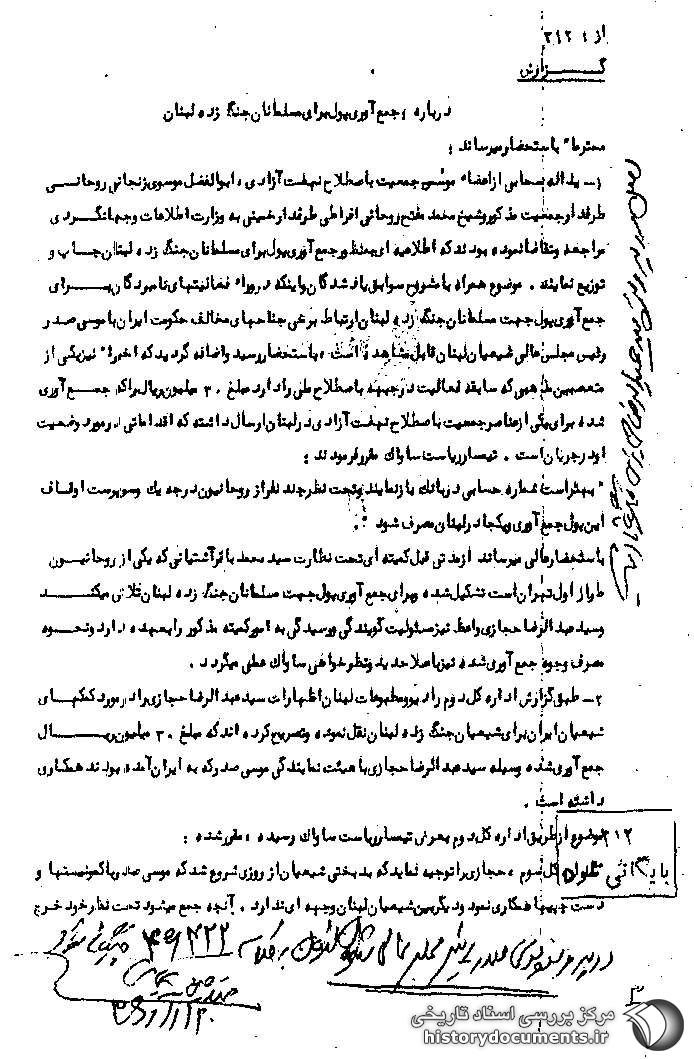 از : ۳۱۲
گــــزارش
درباره : جمع آوری پول برای مسلمانان جنگ زده لبنان
محترما" باستحضار میرساند :
۱ـ یداله سحابی از اعضاء موسس جمعیت باصطلاح نهضت آزادی ، ابوالفضل موسوی زنجانی روحانی
طرفدار جمعیت مذکور و شیخ محمد مفتح روحانی افراطی طرفدار خمینی به وزارت اطلاعات و جهانگردی
مراجعه و تقاضا نموده بودند که اطلاعیه ای بمنظور جمع آوری پول برای مسلمانان جنگ زده لبنان چاپ و
توزیع نمایند . موضوع همراه با مشروح سوابق یاد شدگان و اینکه در وراء فعالیتهای نامبردگان بــرای
جمع آوری پول جهت مسلمانان جنگ زده لبنان ارتباط برخی جناحهای مخالف حکومت ایران با موسی صدر
رئیس مجلس عالی شیعیان لبنان قابل مشاهده است ، باستحضار رسید و اضافه گردید که اخیرا" نیز یکی از
متعصبین مذهبی که سابقه فعالیت در جبهه باصطلاح ملی را دارد مبلغ ۳۰ میلیون ریال پول جمــع آوری
شده برای یکی از عناصر جمعیت باصطلاح نهضت آزادی در لبنان ارسال داشته که اقداماتی در مورد وضعیت
او در جریان است . تیمسار ریاست ساواک مقرر فرمودند :
" بهتر است شماره حسابی در بانک باز نمایند و تحت نظر چند نفر از روحانیون درجه یک و سرپرست اوقاف
این پول جمع آوری و یکجا در لبنان مصرف شود . "
باستحضار عالی میرساند از مدتی قبل کمیته ای تحت نظارت سید محمد باقر آشتیانی که یکی از روحانیــون
طراز اول تهران است تشکیل شده و برای جمع آوری پول جهت مسلمانان جنگ زده لبنان تلاش میکنـــد
و سید عبدالرضا حجازی واعظ نیز مسئولیت گویندگی و رسیدگی به امور کمیته مذکور را بعهده دارد و نحــوه
مصرف وجوه جمع آوری شده نیز با صلاحدید و نظر خواهی ساواک عملی میگردد .
۲ـ طبق گزارش اداره کل دوم رادیو و مطبوعات لبنان اظهارات سید عبدالرضا حجازی را در مورد کمکهــای
شیعیان ایران برای شیعیان جنگ زده لبنان نقل نموده و تصریح کرده اند که مبلغ ۳۰ میلیون ریـــال
جمع آوری شده وسیله سید عبدالرضا حجازی با هیئت نمایندگی موسی صدر که به ایران آمده بودند همکاری
داشته است .
موضوع از طریق اداره کل دوم بعرض تیمسار ریاست ساواک رسیده ، مقرر شده :
کل سوم ، حجازی را توجیه نماید که بدبختی شیعیان از روزی شروع شد که موسی صدر با کمونیستها و
دست چپیها همکاری نمود و دیگر بین شیعیان لبنان وجهه ای ندارد . آنچه جمع میشود تحت نظر خود خرج
۳۱۲
بایگانی شود
در پرونده موسی صدر رئیس مجلس عالی
مرکز بررسی اسناد تاریخی
historydocuments.ir